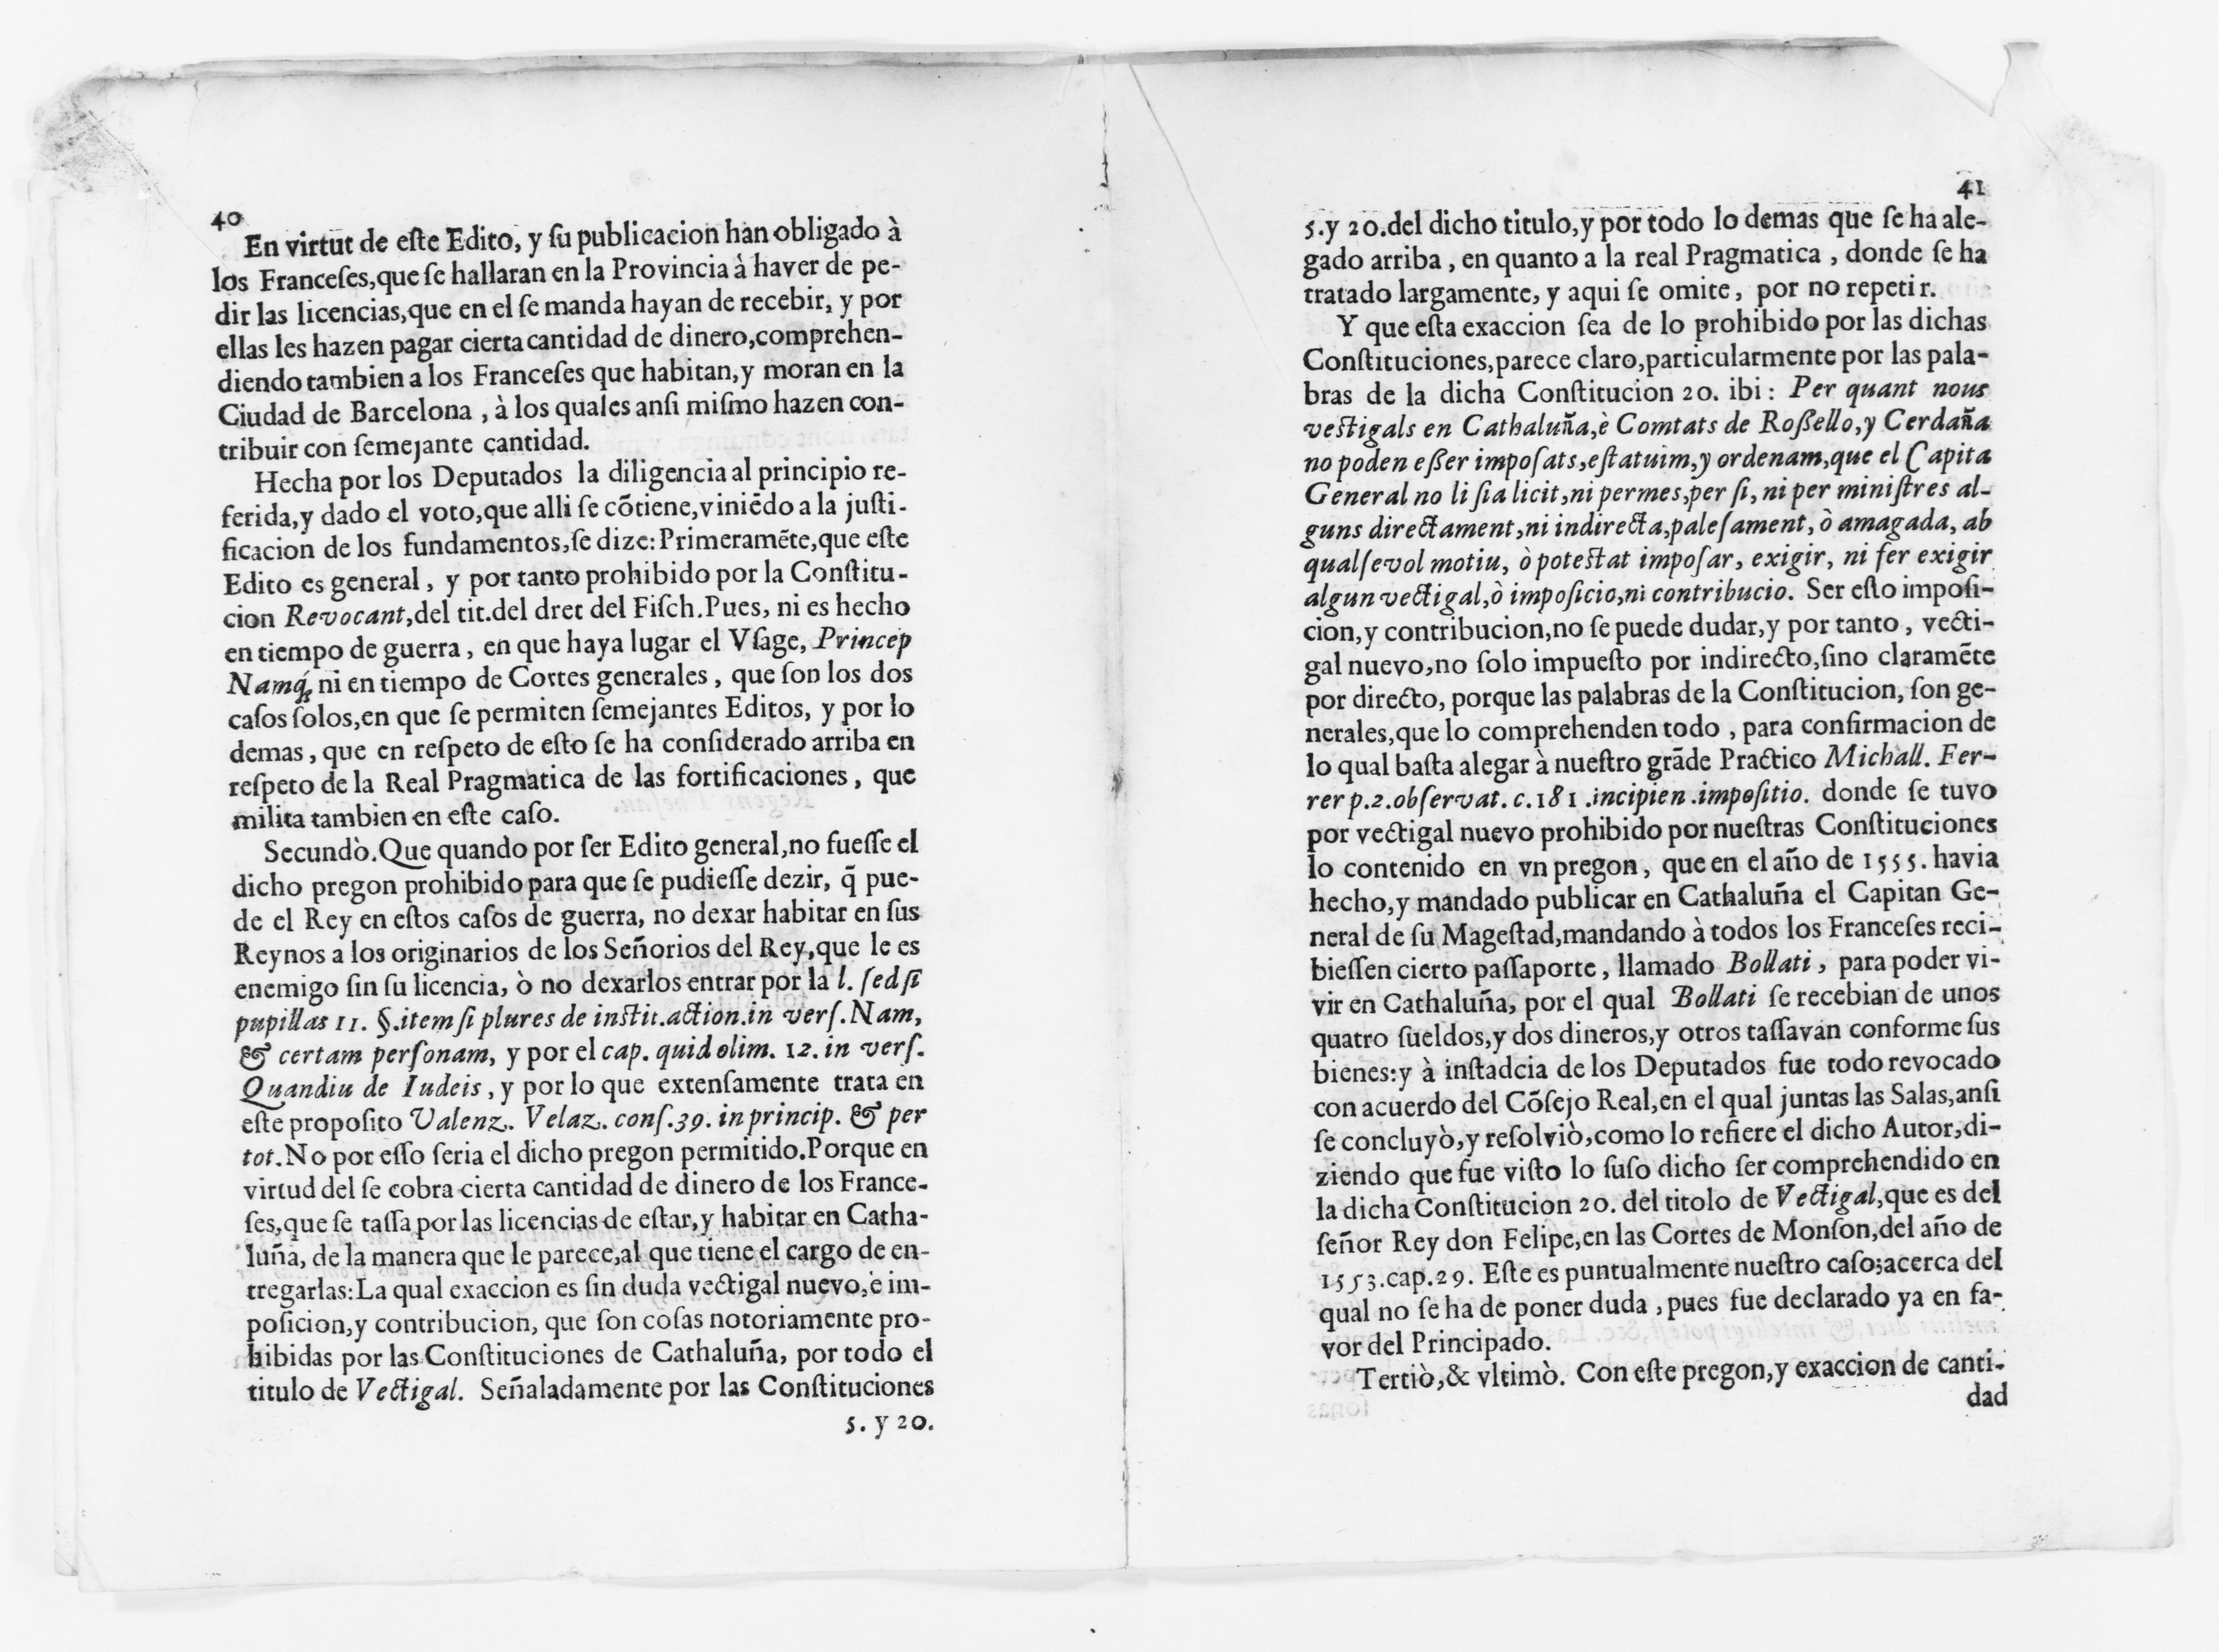 40
En virtut de eſte Edito, y ſu publicacion han obligado à
los Franceſes,que ſe hallaran en la Provincia à haver de pe-
dir las licencias,que en el ſe manda hayan de recebir, y por
ellas les hazen pagar cierta cantidad de dinero,comprehen-
diendo tambien a los Franceſes que habitan,y moran en la
Ciudad de Barcelona , à los quales anſi miſmo hazen con-
tribuir con ſemejante cantidad.
Hecha por los Deputados la diligencia al principio re-
ferida,y dado el voto,que alli ſe cõtiene,viniẽdo a la juſti-
ficacion de los fundamentos,ſe dize:Primeramẽte,que eſte
Edito es general , y por tanto prohibido por la Conſtitu-
cion Revocant,del tit.del dret del Fiſch.Pues, ni es hecho
en tiempo de guerra , en que haya lugar el Vſage, Princep
Namq́; ni en tiempo de Cortes generales , que ſon los dos
caſos ſolos,en que ſe permiten ſemejantes Editos, y por lo
demas , que en reſpeto de eſto ſe ha conſiderado arriba en
reſpeto de la Real Pragmatica de las fortificaciones , que
milita tambien en eſte caſo.
Secundò.Que quando por ſer Edito general,no fueſſe el
dicho pregon prohibido para que ſe pudieſſe dezir, q̃ pue-
de el Rey en eſtos caſos de guerra, no dexar habitar en ſus
Reynos a los originarios de los Señorios del Rey,que le es
enemigo ſin ſu licencia, ò no dexarlos entrar por la l. ſed ſi
pupillas 11. §.item ſi plures de inſtit.action.in verſ.Nam,
& certam perſonam, y por el cap. quid olim. 12. in verſ.
Quandiu de Iudeis , y por lo que extenſamente trata en
eſte propoſito Valenz. Velaz. conſ.39. in princip. & per
tot.No por eſſo ſeria el dicho pregon permitido.Porque en
virtud del ſe cobra cierta cantidad de dinero de los France-
ſes,que ſe taſſa por las licencias de eſtar,y habitar en Catha-
luña, de la manera que le parece,al que tiene el cargo de en-
tregarlas:La qual exaccion es ſin duda vectigal nuevo,è im-
poſicion,y contribucion, que ſon coſas notoriamente pro-
hibidas por las Conſtituciones de Cathaluña, por todo el
titulo de Vectigal. Señaladamente por las Conſtituciones
5. y 20.
41
5.y 20.del dicho titulo,y por todo lo demas que ſe ha ale-
gado arriba , en quanto a la real Pragmatica , donde ſe ha
tratado largamente, y aqui ſe omite, por no repetir.
Y que eſta exaccion ſea de lo prohibido por las dichas
Conſtituciones,parece claro,particularmente por las pala-
bras de la dicha Conſtitucion 20. ibi : Per quant nous
veſtigals en Cathaluña,è Comtats de Roßello,y Cerdaña
no poden eßer impoſats,eſtatuim,y ordenam,que el Capita
General no li ſia licit,ni permes,per ſi, ni per miniſtres al-
guns directament,ni indirecta,paleſament, ò amagada, ab
qualſevol motiu, ò poteſtat impoſar, exigir, ni fer exigir
algun vectigal,ò impoſicio,ni contribucio. Ser eſto impoſi-
cion,y contribucion,no ſe puede dudar,y por tanto , vecti-
gal nuevo,no ſolo impueſto por indirecto,ſino claramẽte
por directo, porque las palabras de la Conſtitucion, ſon ge-
nerales,que lo comprehenden todo , para confirmacion de
lo qual baſta alegar à nueſtro grãde Practico Michàll. Fer-
rer p.2.obſervat. c.181.incipien.impoſitio. donde ſe tuvo
por vectigal nuevo prohibido por nueſtras Conſtituciones
lo contenido en vn pregon , que en el año de 1555. havia
hecho,y mandado publicar en Cathaluña el Capitan Ge-
neral de ſu Mageſtad,mandando à todos los Franceſes reci-
bieſſen cierto paſſaporte , llamado Bollati , para poder vi-
vir en Cathaluña, por el qual Bollati ſe recebian de unos
quatro ſueldos,y dos dineros,y otros taſſavan conforme ſus
bienes:y à inſtadcia de los Deputados fue todo revocado
con acuerdo del Cõſejo Real,en el qual juntas las Salas,anſi
ſe concluyò,y reſolviò,como lo refiere el dicho Autor,di-
ziendo que fue viſto lo ſuſo dicho ſer comprehendido en
la dicha Conſtitucion 20. del titolo de Vectigal,que es del
ſeñor Rey don Felipe,en las Cortes de Monſon,del año de
1553.cap.29. Eſte es puntualmente nueſtro caſo;acerca del
qual no ſe ha de poner duda , pues fue declarado ya en fa-
vor del Principado.
Tertiò,& vltimò. Con eſte pregon,y exaccion de canti-
dad